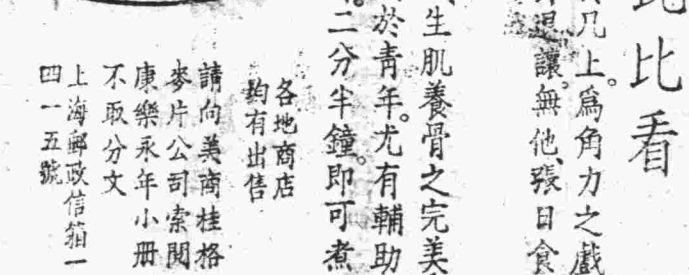 比看
几上。為角力之戲
退讓。無他、張日食
生肌養骨之完美
於青年。尤有輔助
二分半鐘。即可煮
各地商店
均有出售
請向美商桂格
麥片公司索閱
康樂永年小册
不取分文
上海郵政信箱一
四一五號